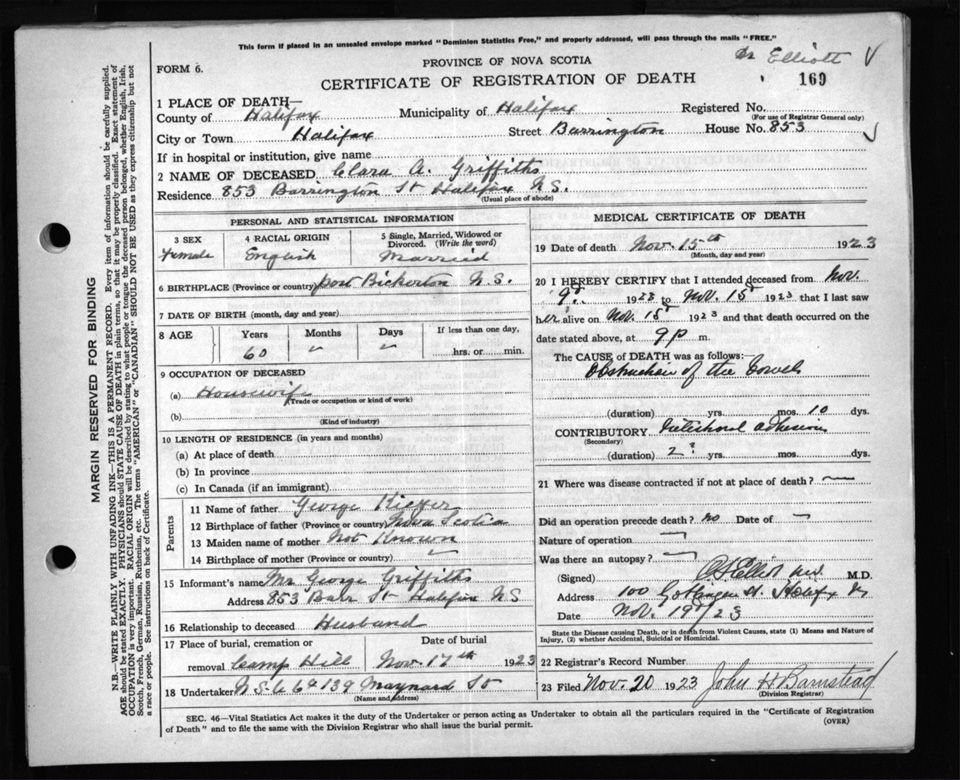 This form if placed in an unsealed envelope marked "Dominion Statistics Free," and properly addressed, will pass through the mails "FREE."
Dr Elliott
FORM 6.
PROVINCE OF NOVA SCOTIA
CERTIFICATE OF REGISTRATION OF DEATH
169
1 PLACE OF DEATH—
County of Halifax Municipality of Halifax Registered No.
(For use of Registrar General only)
City or Town Halifax Street Barrington House No. 853
If in hospital or institution, give name
2 NAME OF DECEASED Clara A. Griffiths
Residence 853 Barrington St Halifax N.S.
(Usual place of abode)
PERSONAL AND STATISTICAL INFORMATION
3 SEX 4 RACIAL ORIGIN 5 Single, Married, Widowed or Divorced. (Write the word)
Female English Married
6 BIRTHPLACE (Province or country) Port Bickerton N.S.
7 DATE OF BIRTH (month, day and year)
8 AGE Years Months Days If less than one day,
60 hrs. or min.
9 OCCUPATION OF DECEASED
(a) Housewife
(Trade or occupation or kind of work)
(b)
(Kind of industry)
10 LENGTH OF RESIDENCE (in years and months)
(a) At place of death
(b) In province
(c) In Canada (if an immigrant)
Parents
11 Name of father George Kieffer
12 Birthplace of father (Province or country) Nova Scotia
13 Maiden name of mother Not Known
14 Birthplace of mother (Province or country)
15 Informant's name Mr George Griffiths
Address 853 Barr St Halifax N S
16 Relationship to deceased Husband
17 Place of burial, cremation or removal Date of burial
Camp Hill Nov. 17th 1923
18 Undertaker N.S.U. Co 139 Maynard St
(Name and address)
MEDICAL CERTIFICATE OF DEATH
19 Date of death Nov. 15th 1923
(Month, day and year)
20 I HEREBY CERTIFY that I attended deceased from Nov.
9th 1923 to Nov. 15th 1923 that I last saw
her alive on Nov. 15th 1923 and that death occurred on the
date stated above, at 9 p m.
The CAUSE OF DEATH was as follows:—
Obstruction of the Bowels
(duration) yrs. mos. 10 dys.
CONTRIBUTORY Intestinal adhesions
(Secondary)
(duration) 2? yrs. mos. dys.
21 Where was disease contracted if not at place of death?
Did an operation precede death? no Date of
Nature of operation
Was there an autopsy?
(Signed) Elliot M.D.
Address 100 Gottingen St. Halifax
Date Nov. 19th/23
State the Disease causing Death, or in death from Violent Causes, state (1) Means and Nature of Injury, (2) whether Accidental, Suicidal or Homicidal.
22 Registrar's Record Number
23 Filed Nov. 20 1923 John H Barnstead
(Division Registrar)
SEC. 46—Vital Statistics Act makes it the duty of the Undertaker or person acting as Undertaker to obtain all the particulars required in the "Certificate of Registration
of Death" and to file the same with the Division Registrar who shall issue the burial permit.
(OVER)
MARGIN RESERVED FOR BINDING
N.B.—WRITE PLAINLY WITH UNFADING INK—THIS IS A PERMANENT RECORD. Every item of information should be carefully supplied.
AGE should be stated EXACTLY. PHYSICIANS should STATE CAUSE OF DEATH in plain terms, so that it may be properly classified. Exact statement of
OCCUPATION is very important. RACIAL ORIGIN will be described by stating to what people or tongue the deceased person belonged, whether English, Irish,
Scotch, French, German, Russian, Ruthenian, etc. The terms "AMERICAN" or "CANADIAN" SHOULD NOT BE USED as they express citizenship but not
a race or people. See instructions on back of Certificate.